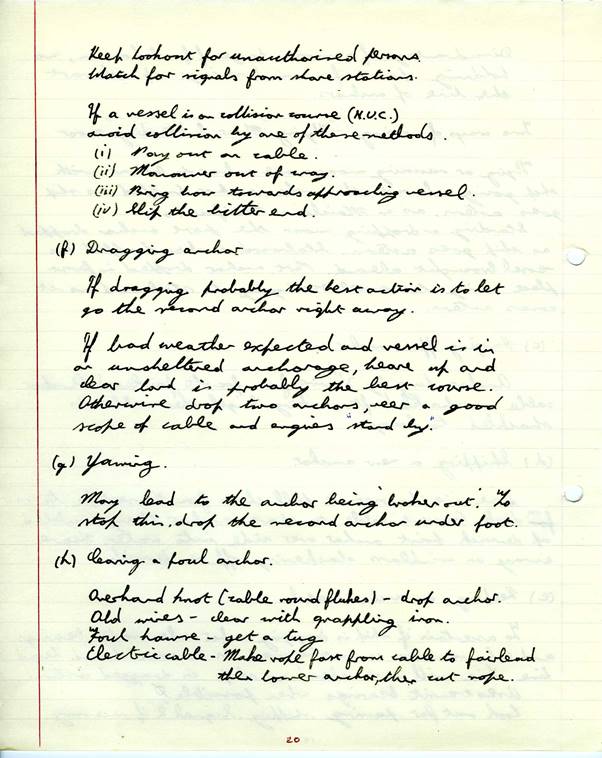 Keep lookout for unauthorised persons.
Watch for signals from shore stations.
If a vessel is on collision course (N.U.C.)
avoid collision by one of these methods.
(i) Pay out on cable.
(ii) Manouver out of way.
(iii) Bring bow towards approaching vessel.
(iv) Slip the bitter end.
(f) Dragging anchor
If dragging probably the best action is to let
go the second anchor right away.
If bad weather expected and vessel is in
an unsheltered anchorage, heave up and
clear land is probably the best course.
Otherwise drop two anchors, veer a good
scope of cable and engines "stand by".
(g) Yawing.
May lead to the anchor being 'broken out'. To
stop this, drop the second anchor under foot.
(h) Clearing a foul anchor.
Overhand knot (cable round flukes) - drop anchor.
Old wires - clear with grappling iron.
Foul hawse - get a tug
Electric cable - Make rope fast from cable to fairlend
then lower anchor, then cut rope.
20